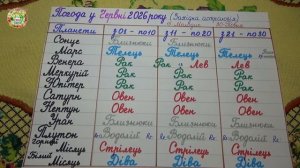 Погода у Червні 2026 року (Західна астрологія)
Планети з 01 - по 10 з 11 - по 20 з 21 - по 30
Сонце Близнюки Близнюки
Марс Телець Телець Телець
Венера Рак Рак Лев Лев
Меркурій Рак Рак Рак
Юпітер Рак Рак Рак
Сатурн Овен Овен Овен
Нептун Овен Овен Овен
Уран Близнюки Близнюки Близнюки
Плутон Водолій R Водолій R Водолій R
Чорний Місяць Стрілець Стрілець Стрілець
Білий Місяць Діва Діва Діва